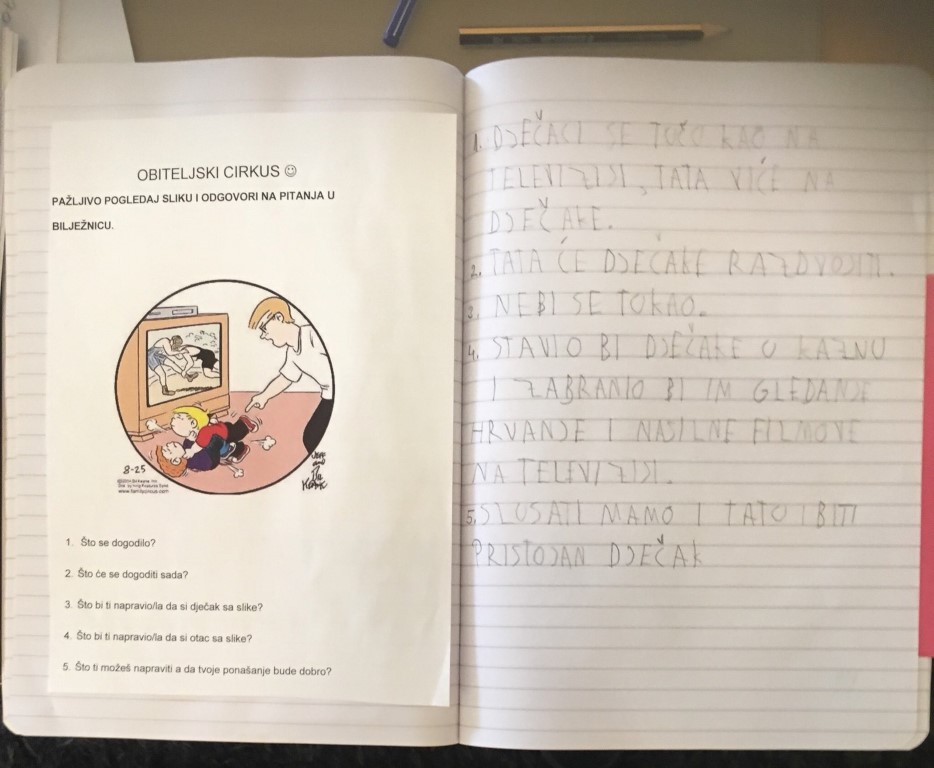 OBITELJSKI CIRKUS ☺
PAŽLJIVO POGLEDAJ SLIKU I ODGOVORI NA PITANJA U
BILJEŽNICU.
8-25
www.familycircus.com
1. Što se dogodilo?
2. Što će se dogoditi sada?
3. Što bi ti napravio/la da si dječak sa slike?
4. Što bi ti napravio/la da si otac sa slike?
5. Što ti možeš napraviti a da tvoje ponašanje bude dobro?
1. DJEČACI SE TUČO KAO NA
TELEVIZIJI, TATA VIČE NA
DJEČAKE.
2. TATA ĆE DJEČAKE RAZDVOJITI.
3. NEBI SE TUKAO.
4. STAVIO BI DJEČAKE U KAZNU
I ZABRANIO BI IM GLEDANJE
HRVANJE I NASILNE FILMOVE
NA TELEVIZIJI.
5. SLUŠATI MAMO I TATO I BITI
PRISTOJAN DJEČAK